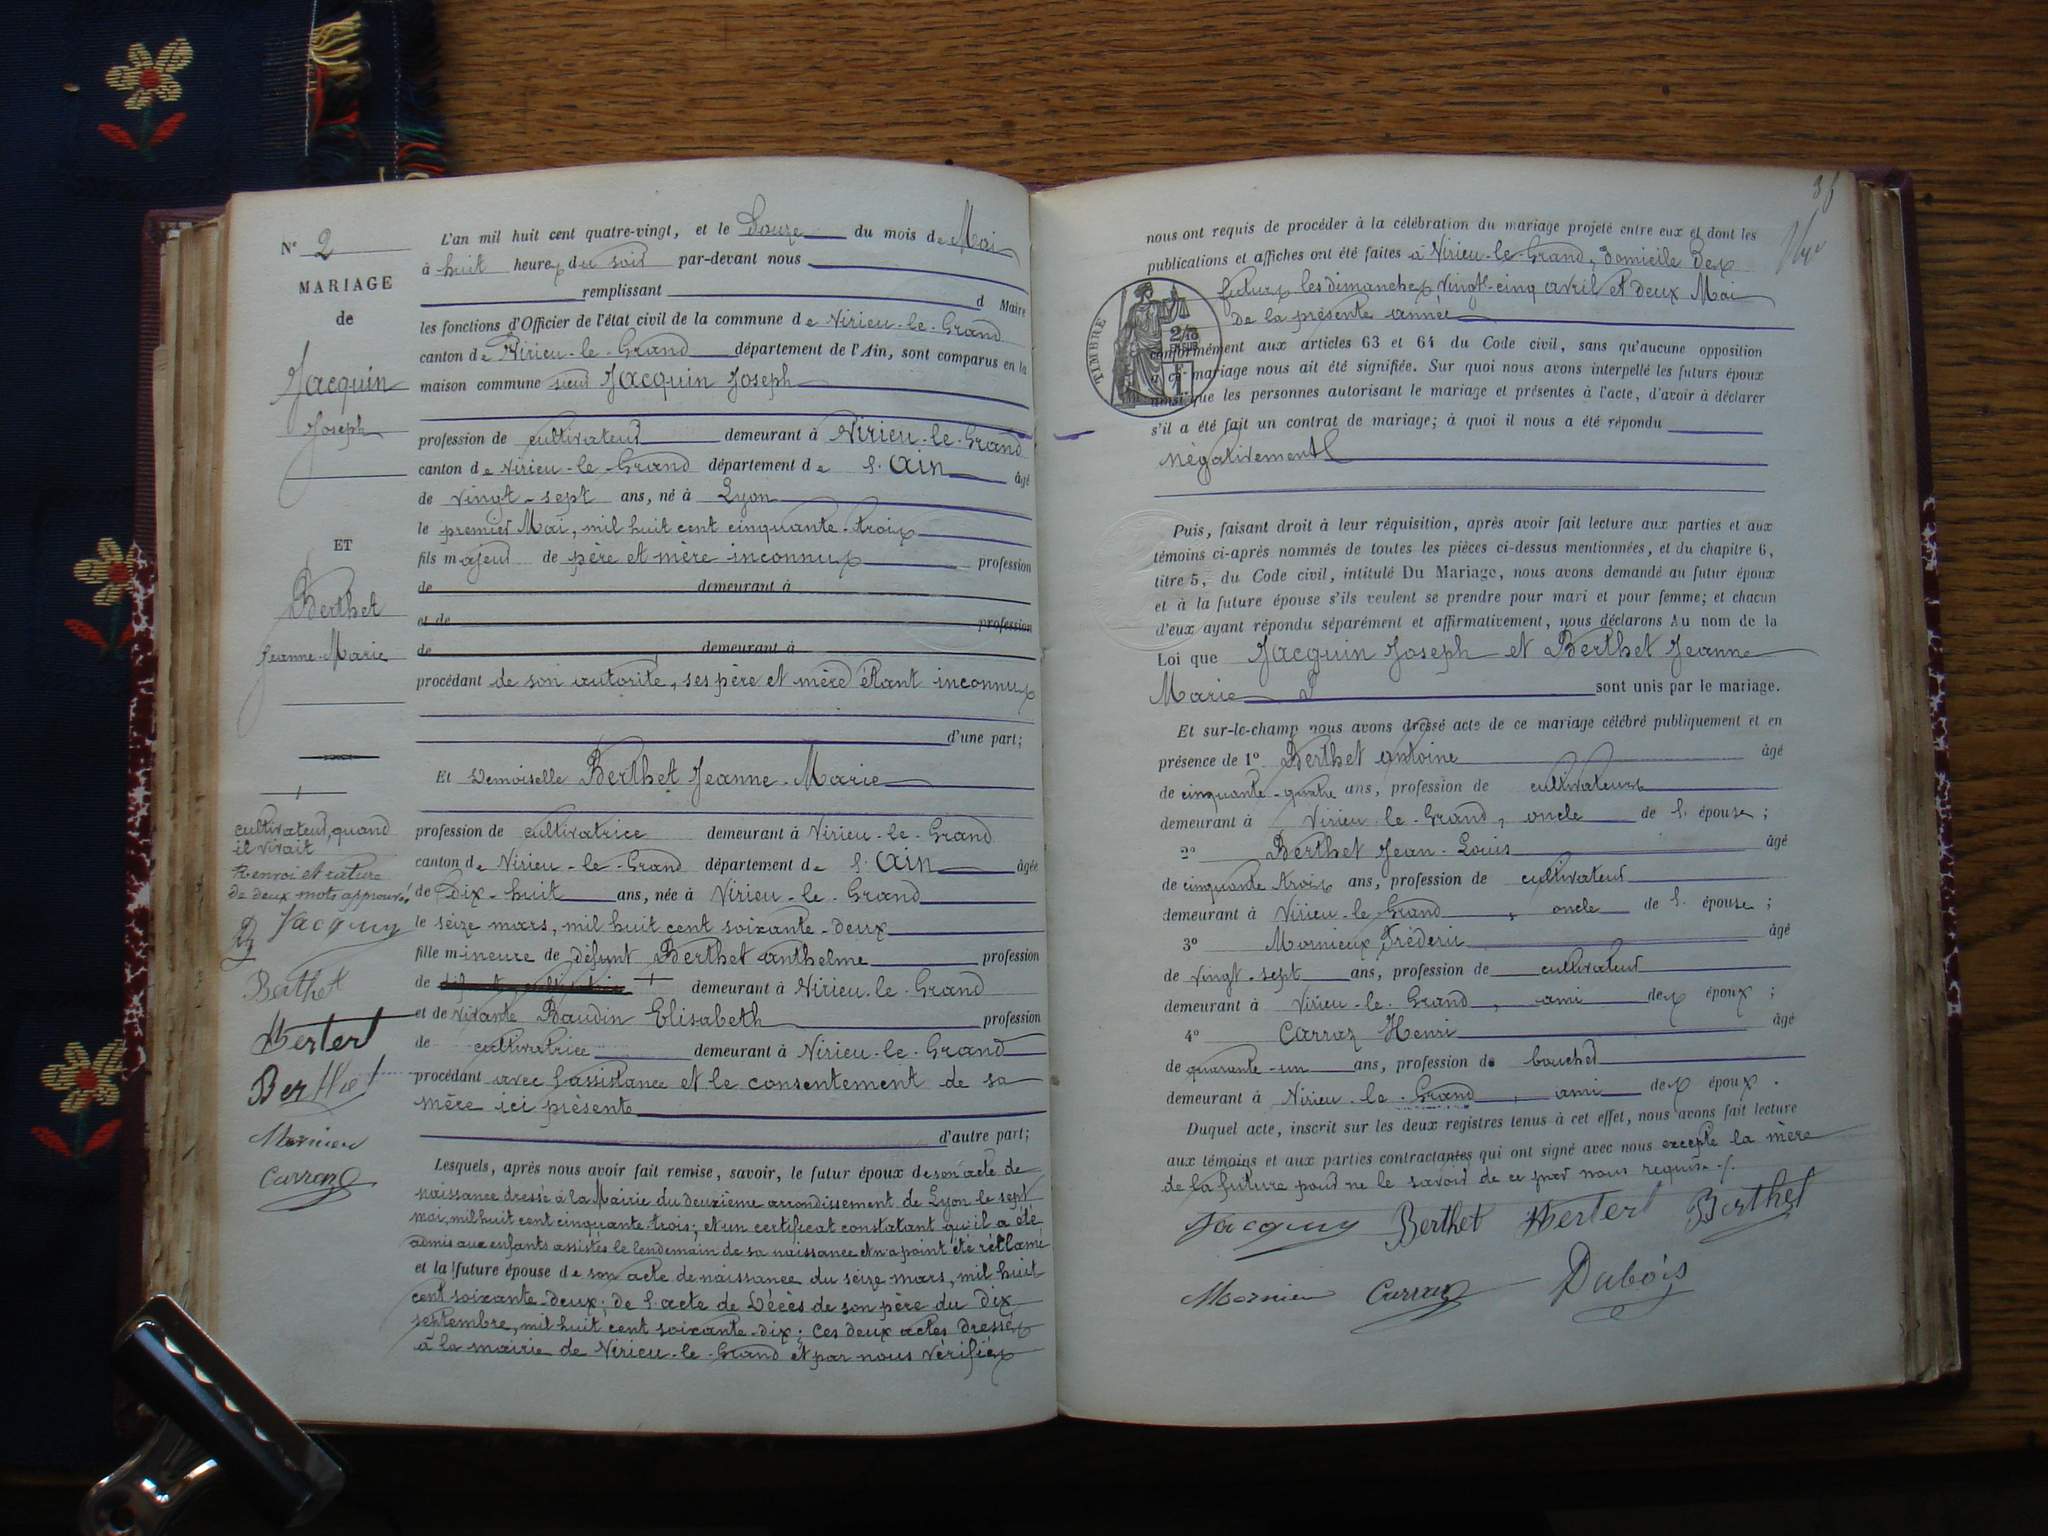 N° 2
MARIAGE
de
Jacquin
Joseph
ET
Berthet
Jeanne-Marie
cultivateur, quand
il vivait
Renvoi et rature
de deux mots approuvés
Jacquin
Berthet
Hertert
Berthet
Mornieu
Carraz
L'an mil huit cent quatre-vingt, et le Douze du mois de Mai
à huit heures du soir par-devant nous
remplissant d Maire
les fonctions d'Officier de l'état civil de la commune de Virieu-le-Grand
canton de Virieu-le-Grand département de l'Ain, sont comparus en la
maison commune sieur Jacquin Joseph
profession de cultivateur demeurant à Virieu-le-Grand
canton de Virieu-le-Grand département de l'Ain âgé
de vingt-sept ans, né à Lyon
le premier Mai, mil huit cent cinquante-trois
fils majeur de père et mère inconnus profession
de demeurant à
et de profession
de demeurant à
procédant de son autorité, ses père et mère étant inconnus
d'une part;
Et Demoiselle Berthet Jeanne-Marie
profession de cultivatrice demeurant à Virieu-le-Grand
canton de Virieu-le-Grand département de l'Ain âgée
de Dix-huit ans, née à Virieu-le-Grand
le seize mars, mil huit cent soixante-deux
fille mineure de défunt Berthet Anthelme profession
de demeurant à Virieu-le-Grand
et de vivante Baudin Elisabeth profession
de cultivatrice demeurant à Virieu-le-Grand
procédant avec l'assistance et le consentement de sa
mère ici présente
d'autre part;
Lesquels, après nous avoir fait remise, savoir, le futur époux de son acte de
naissance dressé à la Mairie du deuxième arrondissement de Lyon le sept
mai, mil huit cent cinquante-trois; et un certificat constatant qu'il a été
admis aux enfants assistés le lendemain de sa naissance et n'a point été réclamé
et la future épouse de son acte de naissance du seize mars, mil huit
cent soixante-deux; de l'acte de Décès de son père du dix
septembre, mil huit cent soixante-dix; ces deux actes dressés
à la mairie de Virieu-le-Grand et par nous vérifiés
nous ont requis de procéder à la célébration du mariage projeté entre eux et dont les
publications et affiches ont été faites à Virieu-le-Grand, domicile des
futurs les dimanches vingt-cinq avril et deux Mai
de la présente année
TIMBRE
conformément aux articles 63 et 64 du Code civil, sans qu'aucune opposition
à ce mariage nous ait été signifiée. Sur quoi nous avons interpellé les futurs époux
ainsi que les personnes autorisant le mariage et présentes à l'acte, d'avoir à déclarer
s'il a été fait un contrat de mariage; à quoi il nous a été répondu
négativement
Puis, faisant droit à leur réquisition, après avoir fait lecture aux parties et aux
témoins ci-après nommés de toutes les pièces ci-dessus mentionnées, et du chapitre 6,
titre 5, du Code civil, intitulé Du Mariage, nous avons demandé au futur époux
et à la future épouse s'ils veulent se prendre pour mari et pour femme; et chacun
d'eux ayant répondu séparément et affirmativement, nous déclarons Au nom de la
Loi que Jacquin Joseph et Berthet Jeanne
Marie sont unis par le mariage.
Et sur-le-champ nous avons dressé acte de ce mariage célébré publiquement et en
présence de 1° Berthet Antoine âgé
de cinquante-quatre ans, profession de cultivateur
demeurant à Virieu-le-Grand, oncle de l'épouse;
2° Berthet Jean-Louis âgé
de cinquante trois ans, profession de cultivateur
demeurant à Virieu-le-Grand, oncle de l'épouse;
3° Mornieux Fréderic âgé
de vingt-sept ans, profession de cultivateur
demeurant à Virieu-le-Grand, ami des époux;
4° Carraz Henri âgé
de quarante-un ans, profession de boucher
demeurant à Virieu-le-Grand, ami des époux.
Duquel acte, inscrit sur les deux registres tenus à cet effet, nous avons fait lecture
aux témoins et aux parties contractantes qui ont signé avec nous excepté la mère
de la future pour ne le savoir de ce par nous requise.
Jacquin Berthet Hertert Berthet
Mornieu Carraz Dubois